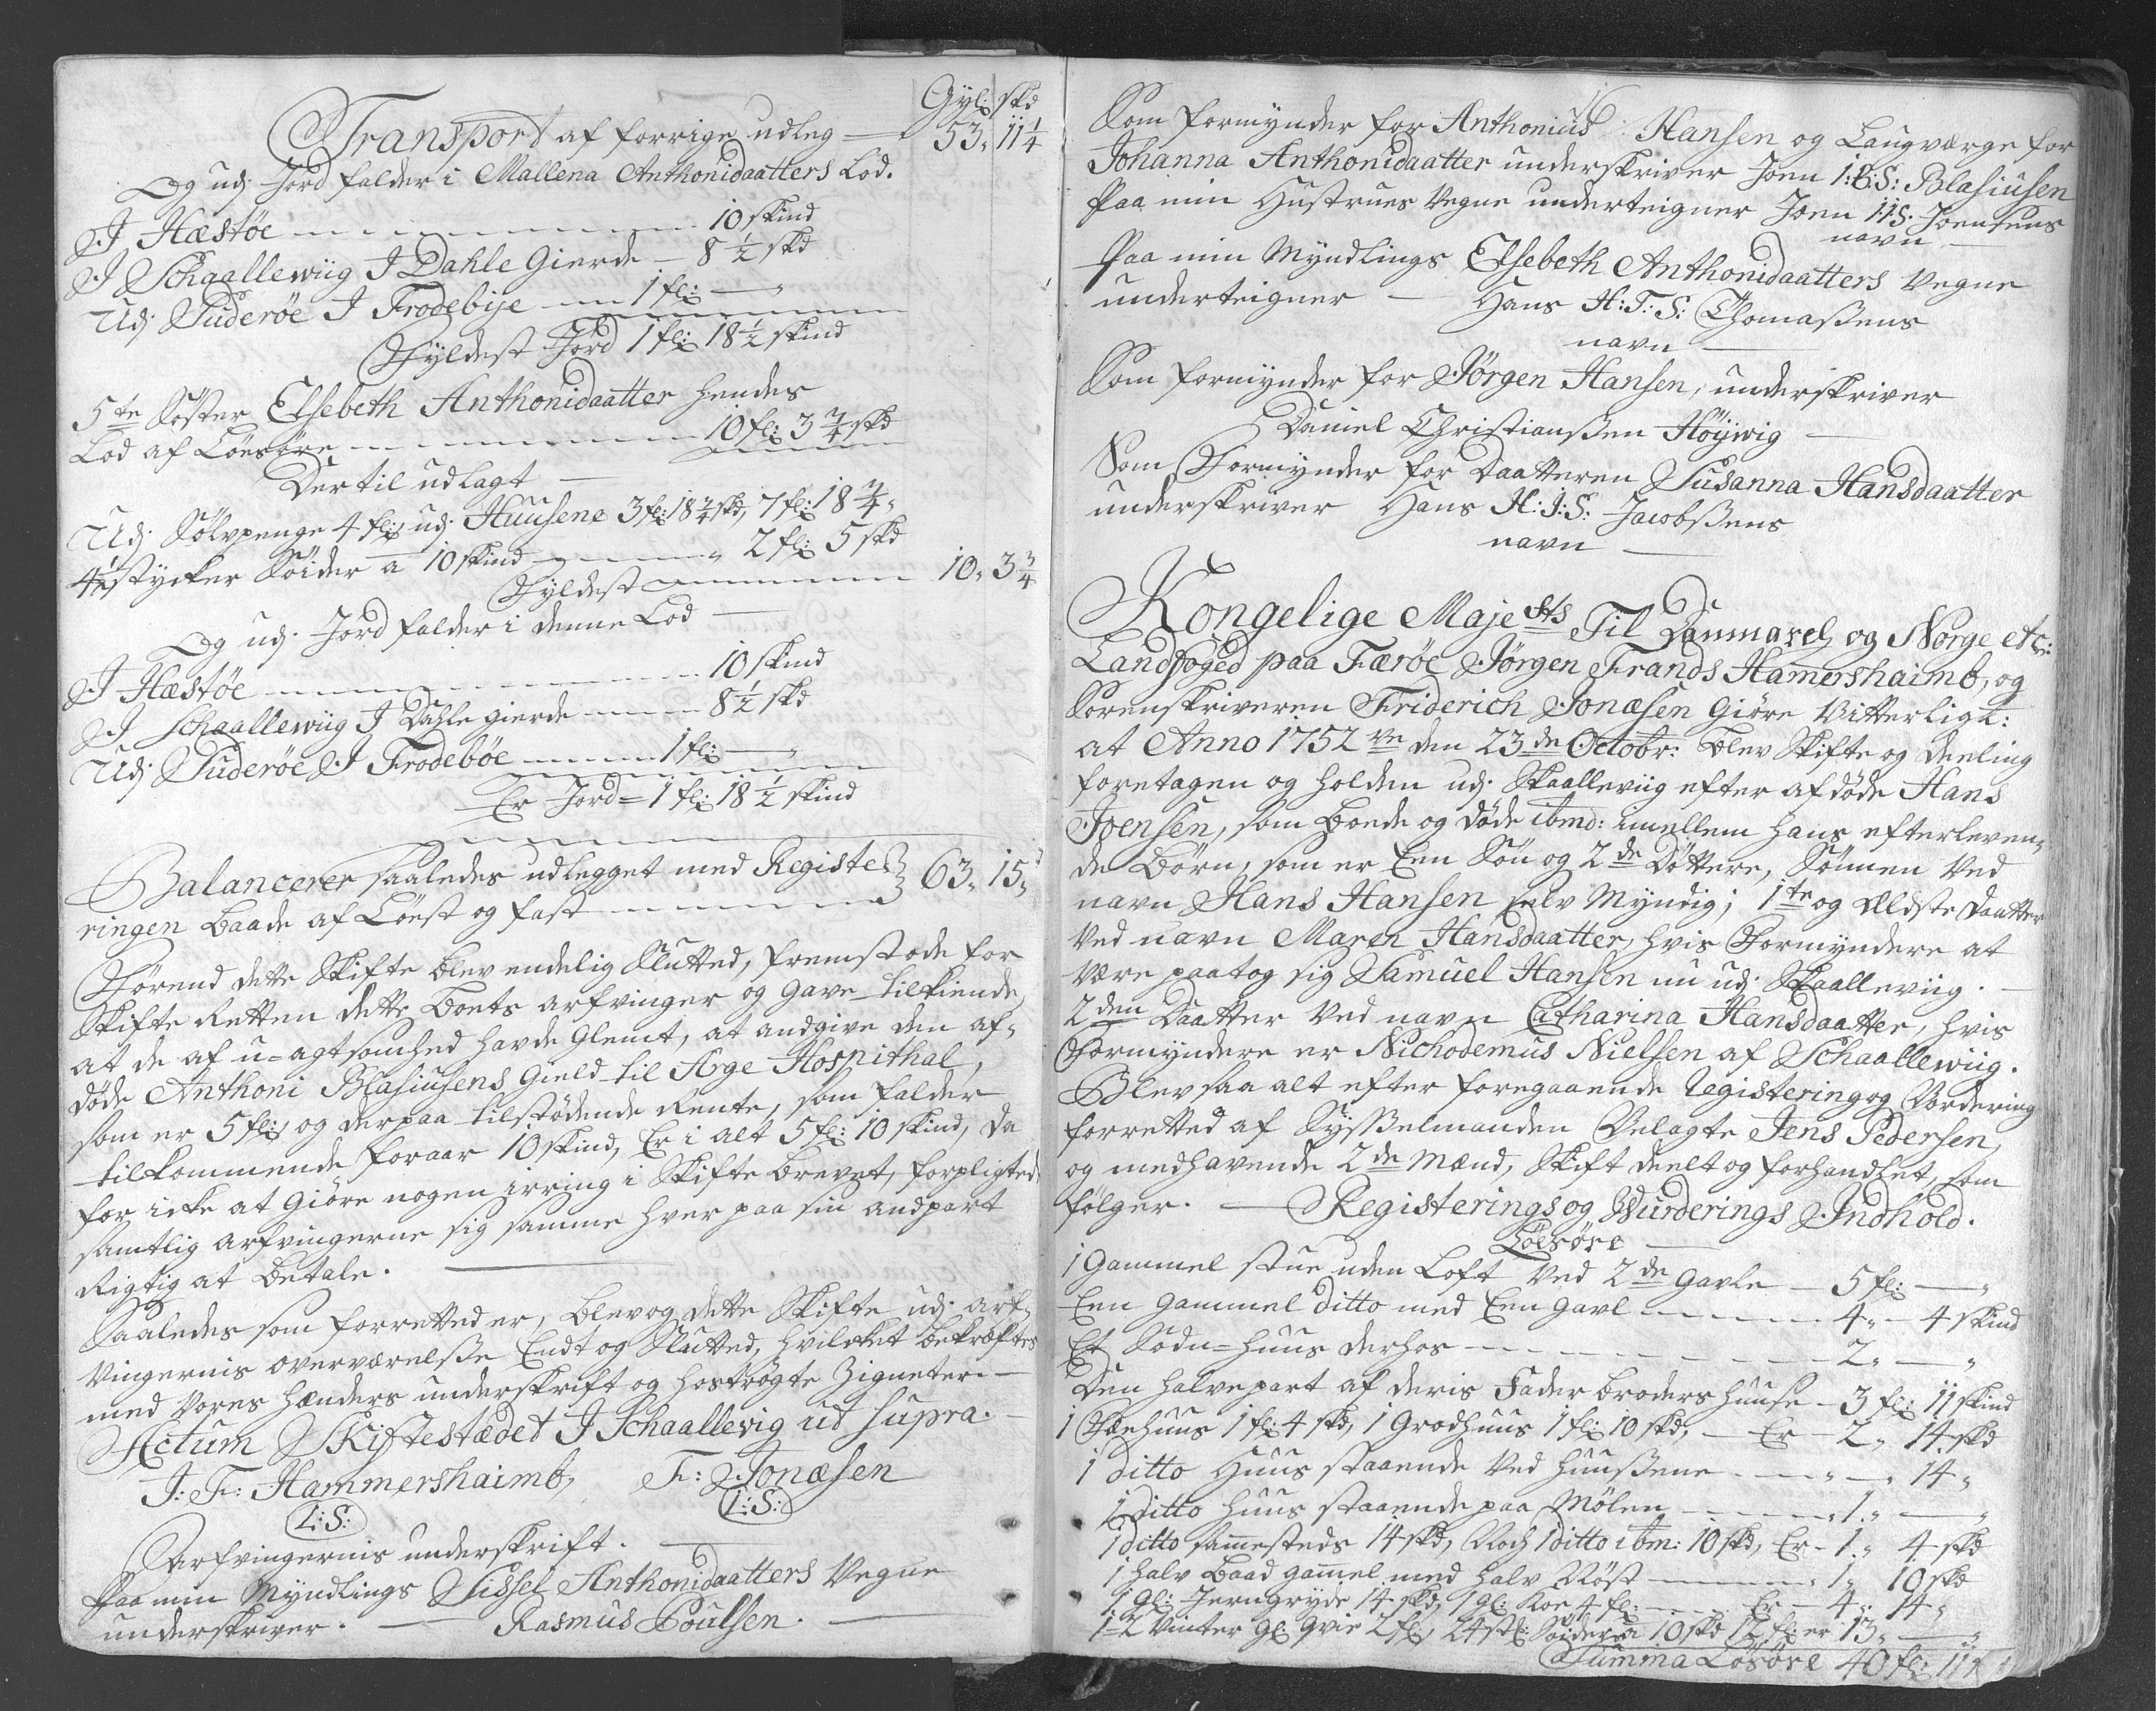 Gyl: skd
Transport af forrige udleg — 53„ 11 1/4
Og udj Jord falder i Mallena Anthonidaatters Lod.
J Hæstøe — 10 skind
J Schaallewiig J Dahle Gierde — 8 1/2 skd
Udj Suderøe J Frodebije — 1 fl: — „
Fyldest Jord 1 fl: 18 1/2 skind
5te Søster Elsebeth Anthonidaatter hendes
Lod af Löesöre — 10 fl: 3 3/4 skd
Dertil udlagt —
Udj Sølvpenge 4 fl: udj Huusene 3 fl: 18 3/4 skd, 7 fl: 18 3/4„
4 1/2 stycker Söider a 10 skind — „ 2 fl: 5 skd
Fyldest — 10„ 3 3/4
Og udj Jord falder i denne Lod —
J Hæstøe — 10 skind
J Schaallewiig J Dahle gierde — 8 1/2 skd
Udj Suderöe J Frodeböe — 1 fl: — „
Er Jord = 1 fl: 18 1/2 skind
Balancerer saaledes udlegget med Registe-
ringen baade af Löest og fast — 63„ 15„
Förend dette Skifte blev endelig Slutted, fremstode for
Skifte Retten dette Boets arfvinger og gave tilkiende,
at de af u=agtsomhed havde Glemt, at andgive den af„
döde Anthoni Blasiusens Gield til Arge Hospithal,
som er 5 fl: og derpaa tilstödende Rente, som falder
tilkommende foraar 10 skind, Er i alt 5 fl: 10 skind, da
for icke at Giöre nogen irring i Skifte brevet, forpligted
samtlig arfvingerne sig samme hver paa sin andpart
Rigtig at betale.
Saaledes som forretted er, blev og dette Skifte udj arf„
vingernis overværelsse Endt og Slutted, hvilcket bekræftes
med vores hænders underskrift og hoströgte Zigneter. —
Actum Skiftestædet J Schaallevig ut supra. —
J: F: Hammershaimb, F: Jonæsen
L:S: L:S:
Arfvingernis underskrift. —
Paa min Myndlings Sissel Anthonidaatters Vegne
underskriver. — Rasmus Poulsen. —
16
Som formynder for Anthonius Hansen og Laugværge for
Johanna Anthonidaatter underskriver Joen I:B:S: Blasiusen
Paa min Hustrues Vegne underteigner Joen I:I:S: Joensens
navn —
Paa min Myndlings Elsebeth Anthonidaatters Vegne
underteigner — Hans H:T:S: Thomaßens
navn —
Som formynder for Jörgen Hansen, underskriver
Daniel Christianßen Höijwig —
Som Formynder for Daatteren Susanna Hansdaatter
underskriver Hans H:J:S: Jacobßens
navn —
Kongelige Majests Til Danmarck og Norge etc:
Landfoged paa Færöe Jörgen Frands Hamershaimb, og
Sorenskriveren Friderich Jonæsen Giöre Vitterligt:
at Anno 1752 ve den 23de Octobr: blev Skifte og deeling
foretagen og holden udj Skaalleviig efter afdöde Hans
Joensen, som boede og döde ibmd: imellem hans efterleven„
de Börn, som er Een Sön og 2de Döttere, Sönnen Ved
navn Hans Hansen selv Myndig; 1te og Ældste Daatter
Ved navn Maren Hansdaatter, hvis Formyndere at
være paatog sig Samuel Hansen nu udj Skaalleviig. —
2den Daatter Ved navn Catharina Hansdaatter, hvis
Formyndere er Nichodemus Nielsen af Schaallewiig.
Blev saa alt efter foregaaende Registering og Vordering
forretted af Sysselmanden Velagte Jens Pedersen,
og medhavende 2de Mænd, Skift deelt og forhandlet, som
fölger. — Registerings og Wurderings Indhold.
Löesöre —
1 Gammel stue uden Loft Ved 2de Gavle — 5 fl: — „
Een Gammel ditto med Een Gavl — 4„ — 4 skind
Et Sodn=huus derhos — 2„ — „
Den halvepart af deris Fader broders huuse — 3 fl: 11 skind
1 Faehuus 1 fl: 4 skd, 1 Grodhuus 1 fl: 10 skd, — Er 2„ 14 skd
1 ditto Huus staaende Ved huußene — „ — 14„
1 ditto huus staaende paa Mölen — 1„ — „
1 ditto sammesteds 14 skd, Noch 1 ditto ibm: 10 skd, Er — 1„ 4 skd
1 halv Baad gammel med halv Nöst — 1„ 10 skd
1 gl: Jerngryde 14 skd, 1 gl: Koe 4 fl: — Er — 4„ 14„
1=2 Vinter gl: Qvie 2 fl:, 24 st: Söider a 10 skd 12 fl: er 13„ — „
Summa Lösöre 40 fl: 11